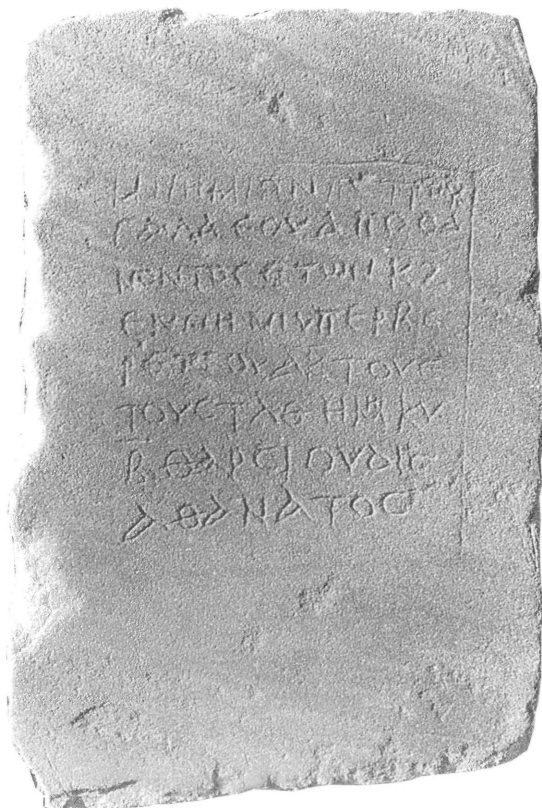 ΜΝΗΜΙΟΝ ΠΕΤΡΟΥ
ΓΑΛΑCΟΥ ΑΠΟΘΑ
ΝΟΝΤΟC ΕΤΩΝ ΚΖ
ΕΝ ΜΗΝΙ ΥΠΕΡΒΕ
ΡΕΤΕΟΥ ΤΟΥ Ε
ΤΟΥC ΤΛΕ ΗΜ ΚΥ
Β ΘΑΡCΙ ΟΥΔΙC
ΑΘΑΝΑΤΟC